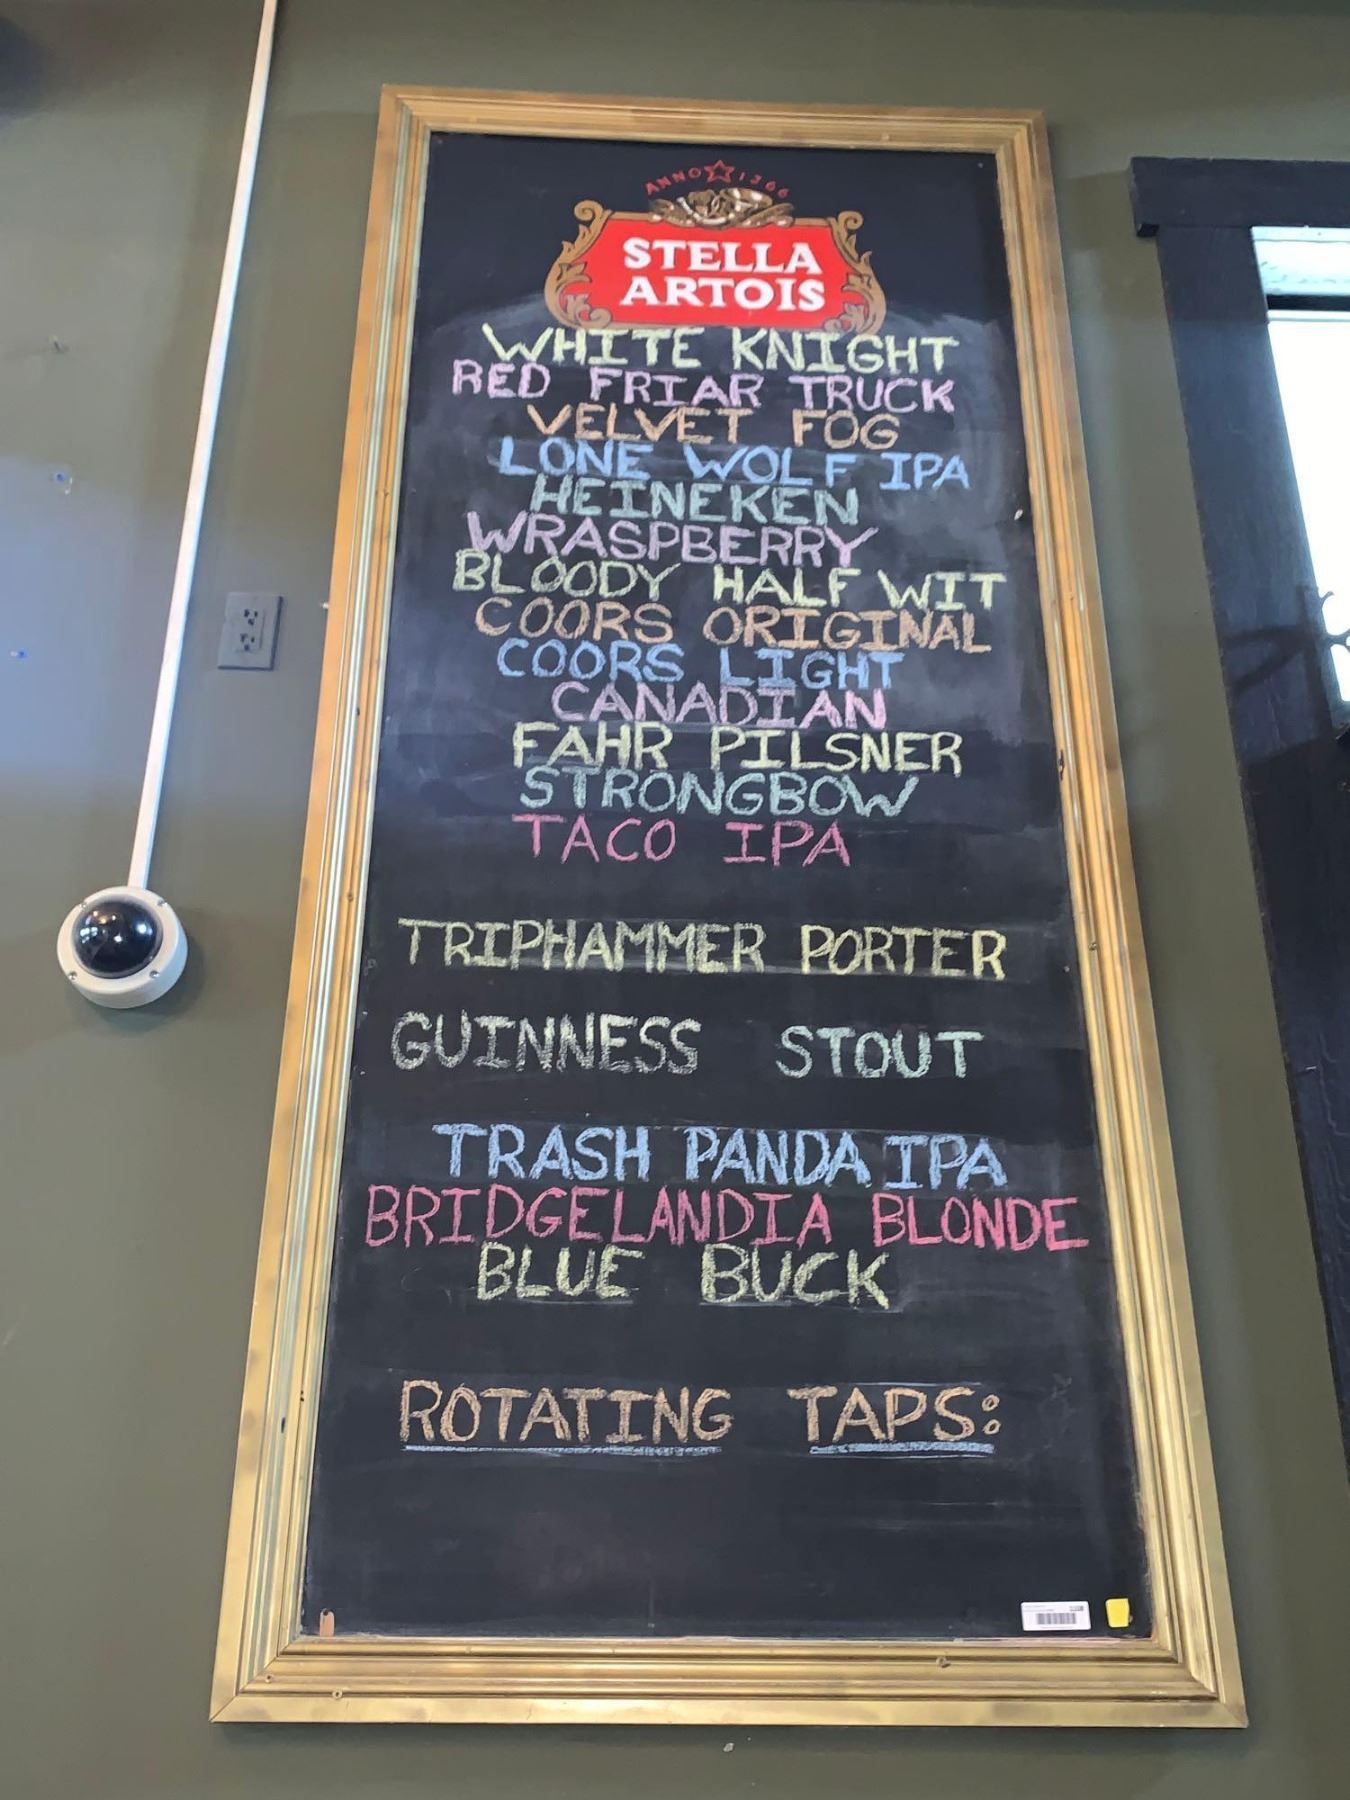 ANNO 1366
STELLA
ARTOIS
WHITE KNIGHT
RED FRIAR TRUCK
VELVET FOG
LONE WOLF IPA
HEINEKEN
WRASPBERRY
BLOODY HALF WIT
COORS ORIGINAL
COORS LIGHT
CANADIAN
FAHR PILSNER
STRONGBOW
TACO IPA
TRIPHAMMER PORTER
GUINNESS STOUT
TRASH PANDA IPA
BRIDGELANDIA BLONDE
BLUE BUCK
ROTATING TAPS: